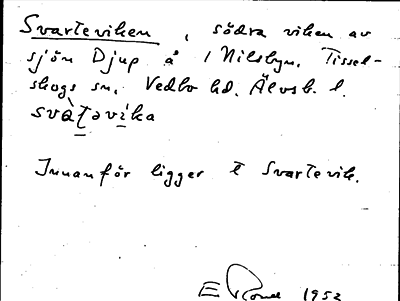 Svarteviken, södra viken av
sjön Djup å i Nilsbyn, Tissel-
skogs sn, Vedbo hd. Älvsb. l.
svàt̠əvi̠ka
Innanför ligger t Svartevik.
E 1952